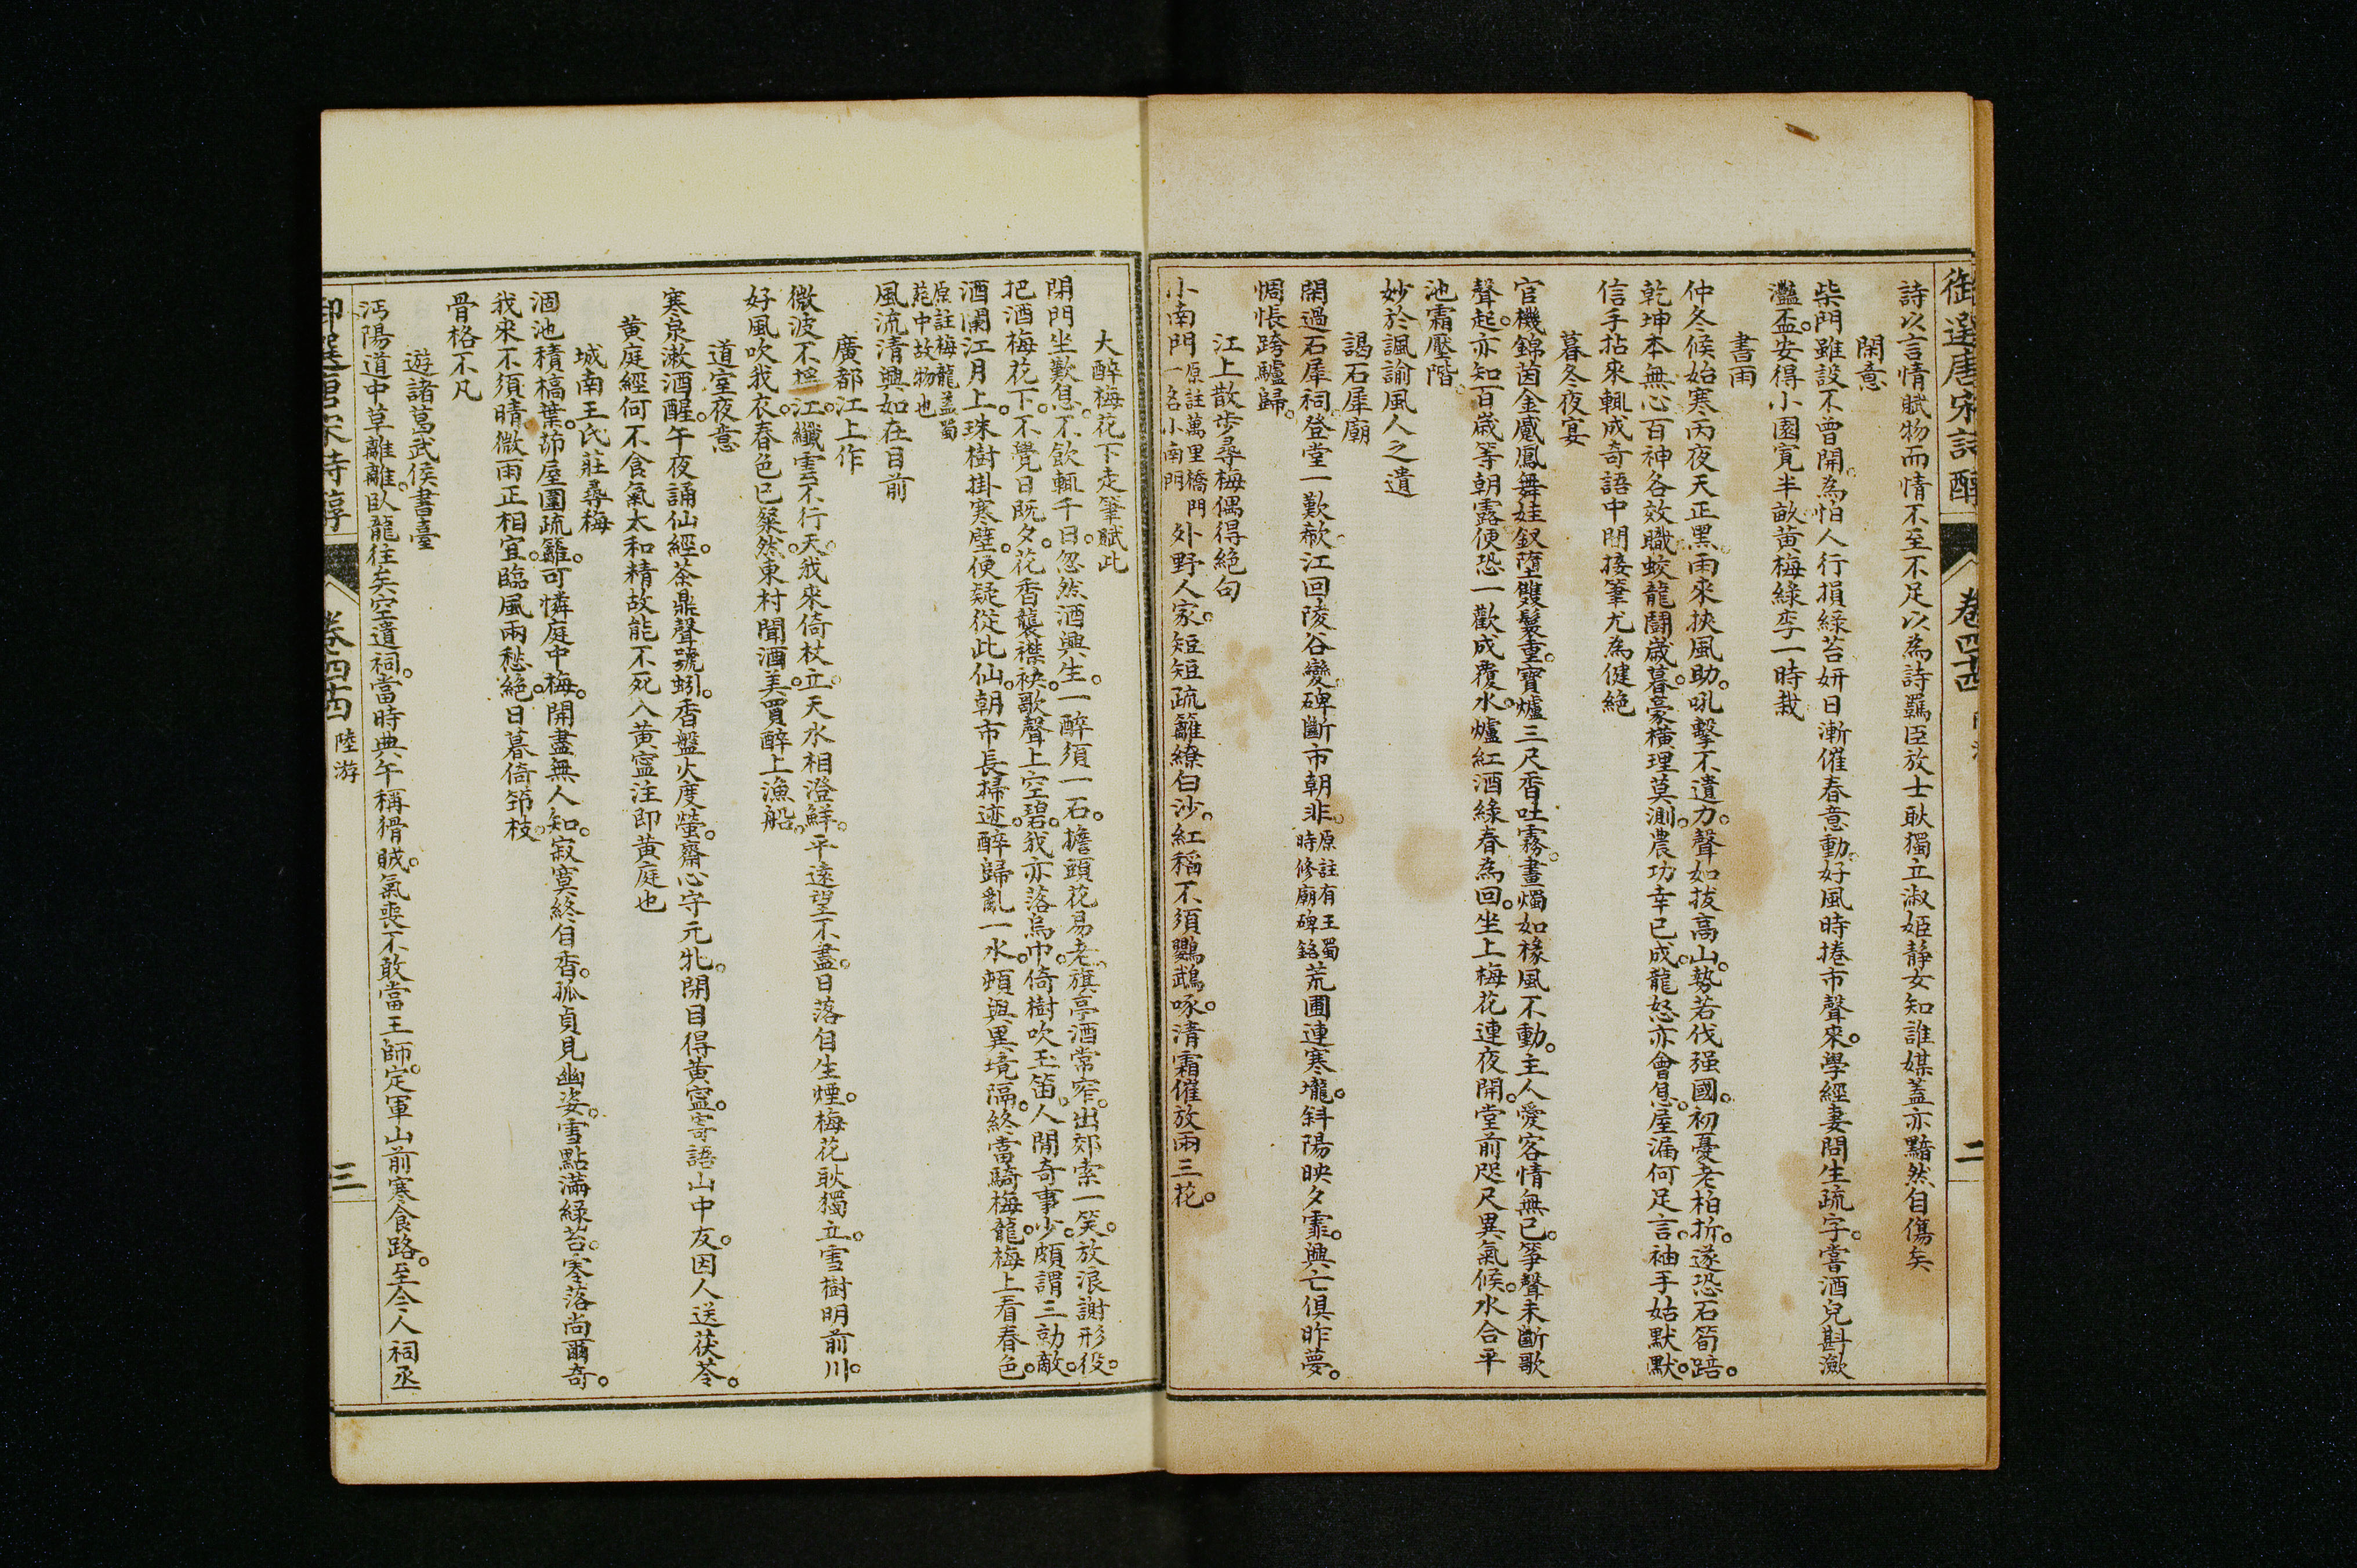 御選唐宋詩醇 卷四十四 二
詩以言情賦物而情不至不足以為詩羈臣放士耿獨立淑姬靜女知誰媒蓋亦黯然自傷矣
閑意
柴門雖設不曾開為怕人行損綠苔妍日漸催春意動好風時捲市聲來學經妻問生疏字嘗酒兒斟瀲
灩盃安得小園寬半畝黃梅綠李一時栽
書雨
仲冬候始寒丙夜天正黑雨來挾風助吼擊不遺力聲如拔高山勢若伐强國初憂老柏折遂恐石筍踣
乾坤本無心百神各效職蛟龍鬪歲暮豪橫理莫測農功幸已成龍怒亦會息屋漏何足言袖手姑默默
信手拈來輒成奇語中間接筆尤為健絕
暮冬夜宴
官機錦茵金蹙鳳舞娃釵墮雙鬟重寶爐三尺香吐霧畫燭如椽風不動主人愛客情無已箏聲未斷歌
聲起亦知百歲等朝露便恐一歡成覆水爐紅酒綠春為回坐上梅花連夜開堂前咫尺異氣候水合平
池霜壓階
妙於諷諭風人之遺
謁石犀廟
閑過石犀祠登堂一歎欷江回陵谷變碑斷市朝非原註有王蜀時修廟碑銘荒圃連寒壠斜陽映夕霏興亡俱昨夢
惆悵跨驢歸
江上散步尋梅偶得絕句
小南門原註萬里橋門一名小南門外野人家短短疏籬繚白沙紅稻不須鸚鵡啄清霜催放兩三花
大醉梅花下走筆賦此
閉門坐歎息不飲輒千日忽然酒興生一醉須一石檐頭花易老旗亭酒常窄出郊索一笑放浪謝形役
把酒梅花下不覺日既夕花香襲襟袂歌聲上空碧我亦落烏巾倚樹吹玉笛人間奇事少頗謂三勍敵
酒闌江月上珠樹掛寒璧便疑從此仙朝市長掃迹醉歸亂一水頓與異境隔終當騎梅龍梅上看春色
原註梅龍蓋蜀苑中故物也
風流清興如在目前
廣都江上作
微波不搖江纖雲不行天我來倚杖立天水相澄鮮平遠望不盡日落自生煙梅花耿獨立雪樹明前川
好風吹我衣春色已粲然東村聞酒美買醉上漁船
道室夜意
寒泉漱酒醒午夜誦仙經茶鼎聲號蚓香盤火度螢齋心守元牝閉目得黃寍寄語山中友因人送茯苓
黃庭經何不食氣太和精故能不死入黃寍注即黃庭也
城南王氏莊尋梅
涸池積槁葉茆屋圍疏籬可憐庭中梅開盡無人知寂寞終自香孤貞見幽姿雪點滿綠苔零落尚爾奇
我來不須晴微雨正相宜臨風兩愁絕日暮倚笻枝
骨格不凡
遊諸葛武侯書臺
沔陽道中草離離臥龍往矣空遺祠當時典午稱猾賊氣喪不敢當王師定軍山前寒食路至今人祠丞
御選唐宋詩醇 卷四十四 陸游 三